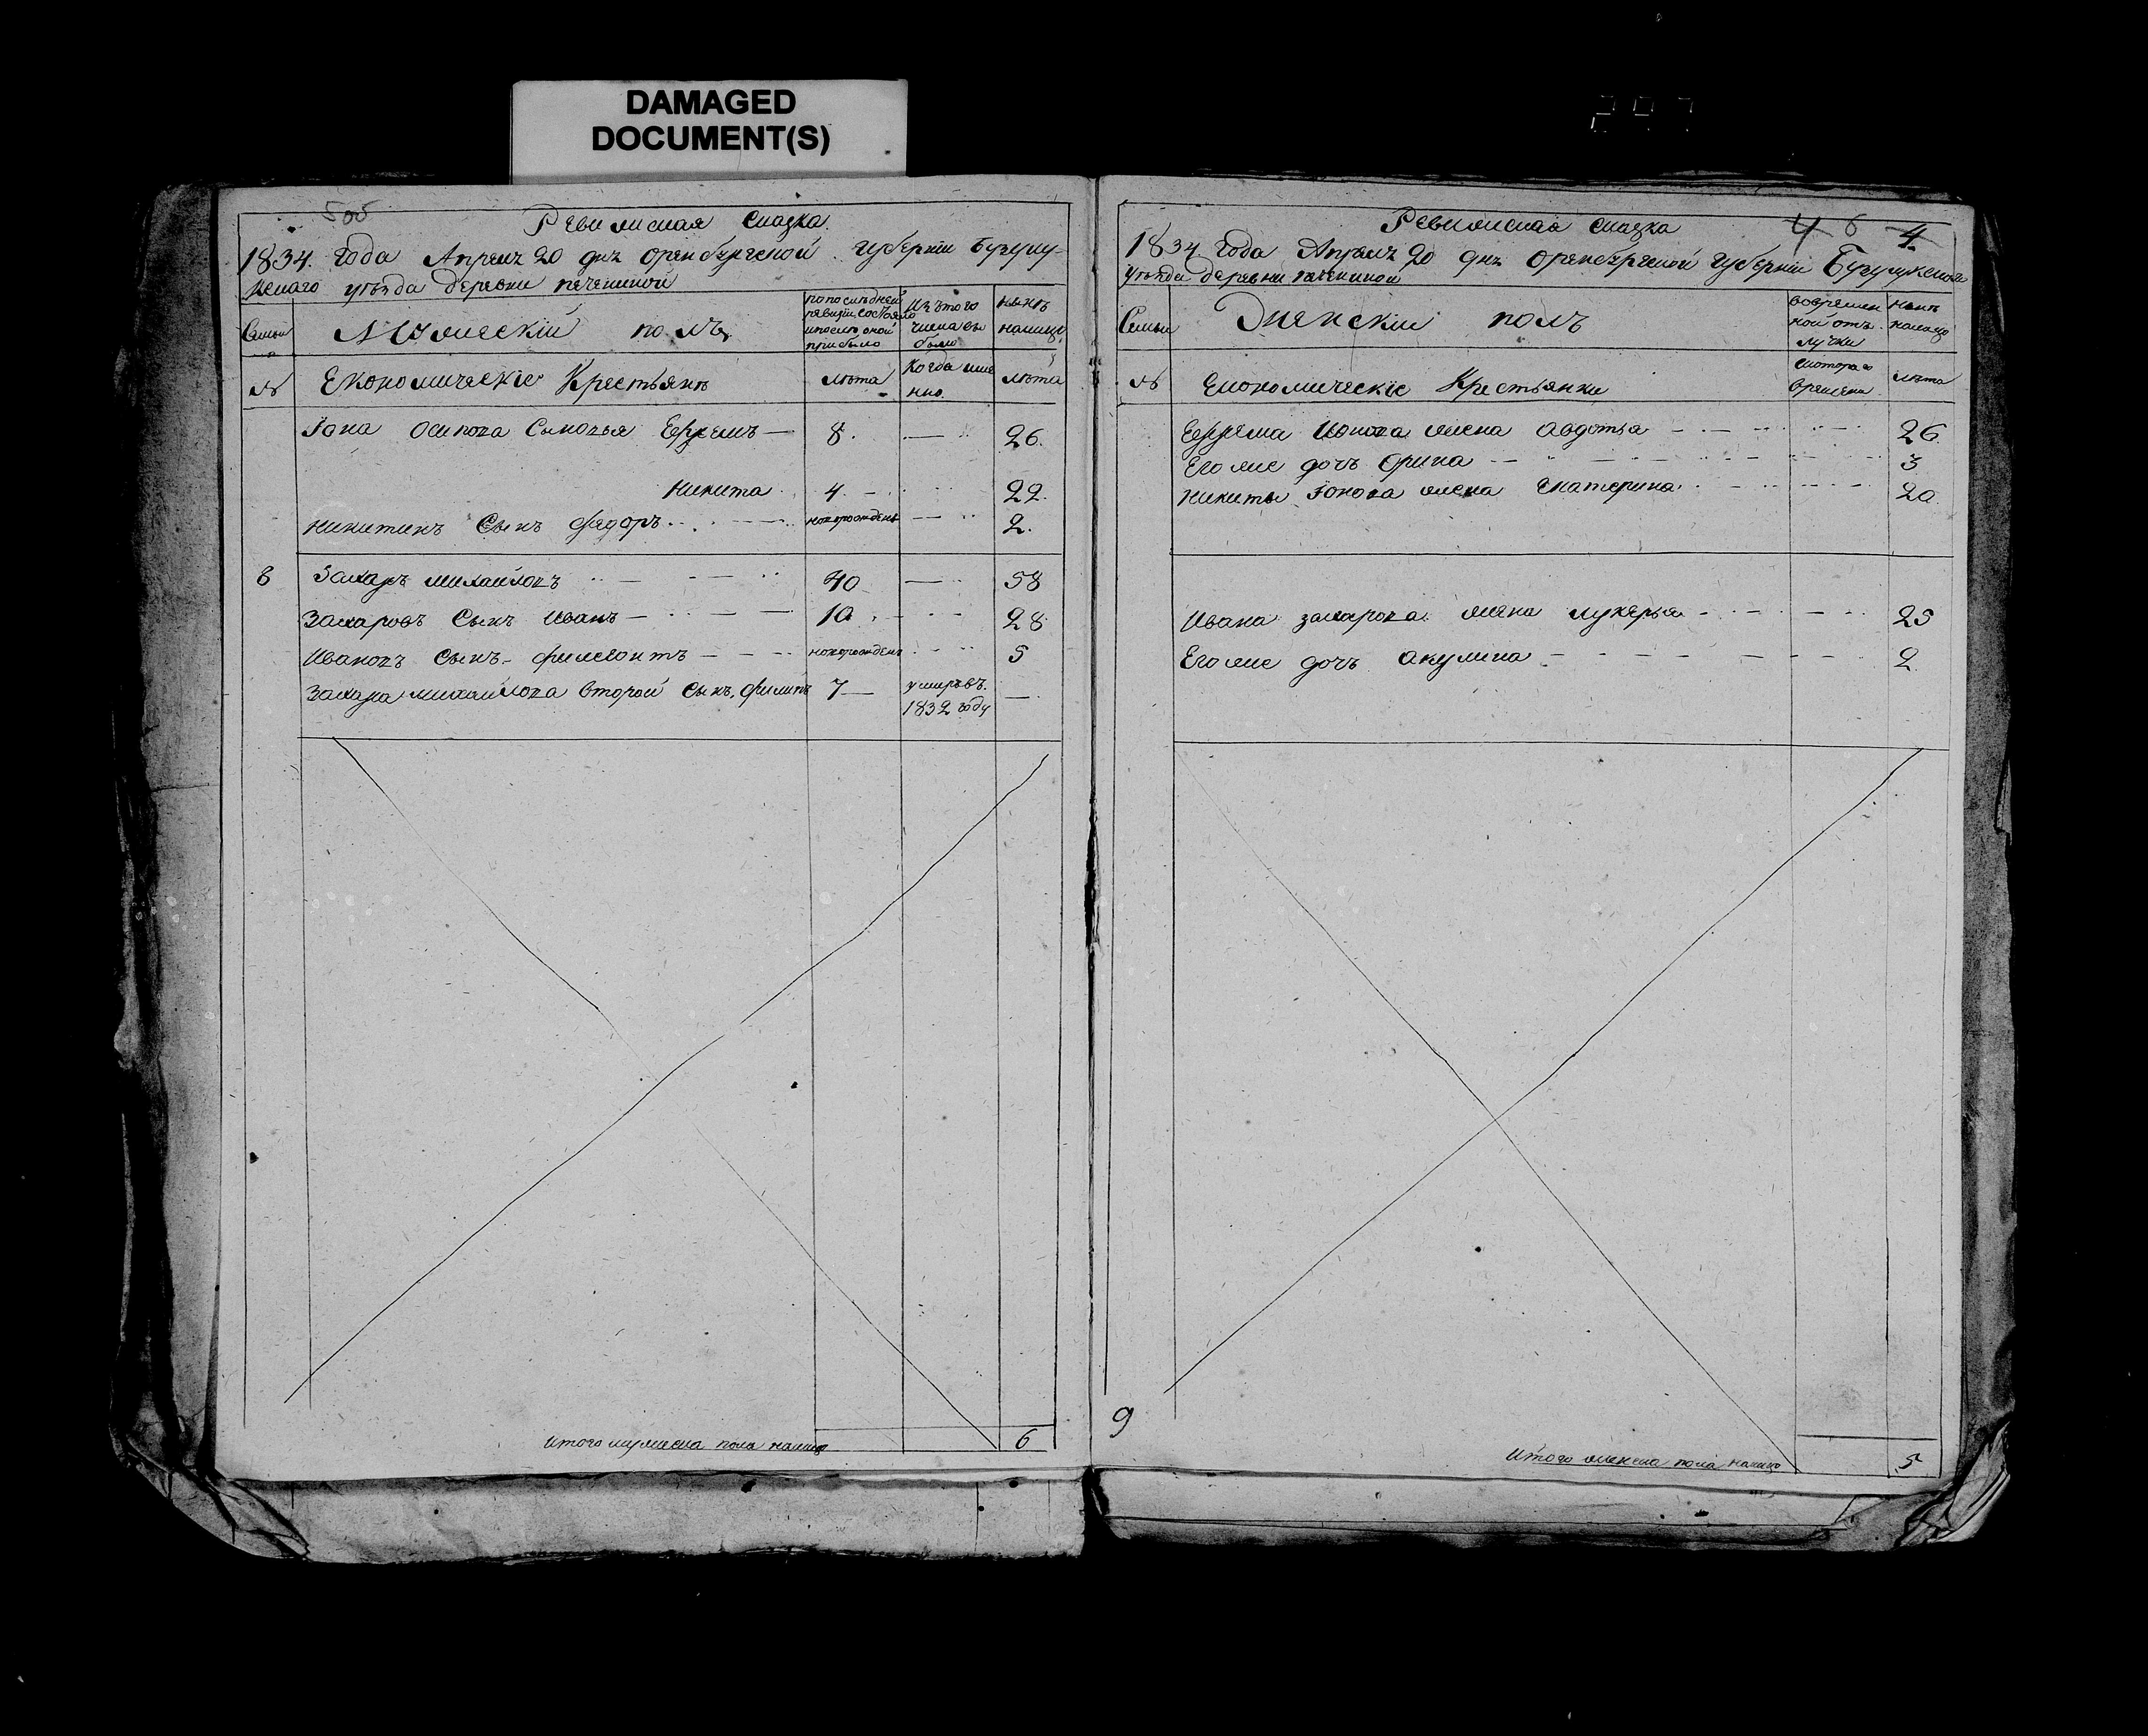 DAMAGED
DOCUMENT(S)
505
Ревижская сказка.
1834. года Апреля 20 дня Оренбургской губернии Бузулу-
кскаго уезда деревни печениной
Семьи
Мужескій полъ,
по последней ревизіи состояло и после оной прибыло
Изъ того числа выбыло
ныне налицо
№
Економическіе Крестьяне
лета
Когда имянно.
лета
Іона Осипова Сыновья Ефремъ — 8. — 26.
Никита 4. — 22.
Никитинъ Сынъ Федоръ новорожденъ — 2.
8 Захаръ Михайловъ — 40 — 58
Захаровъ Сынъ Иванъ — 10. — 28
Ивановъ Сынъ — новорожденъ 5
Захара Михайлова второй Сынъ, Филипъ 7 — умеръ въ 1832 году —
Итого мужеска пола налицо 6
Ревижская сказка
4 6 4.
1834. года Апреля 20 дня Оренбургской губерніи Бузулукскаго
уезда деревни печениной
Семьи
Женскій полъ
во временной отлучке
ныне налицо
№
Економическіе Крестьянки
с котораго времени
лета
Ефрема Ионова жена Авдотья — 26.
Его же дочь Орина — 3
Никиты Іонова жена Екатерина — 20
Ивана Захарова жена Лукерья — 25
Его же дочь Акулина — 2
9
Итого женска пола налицо 5